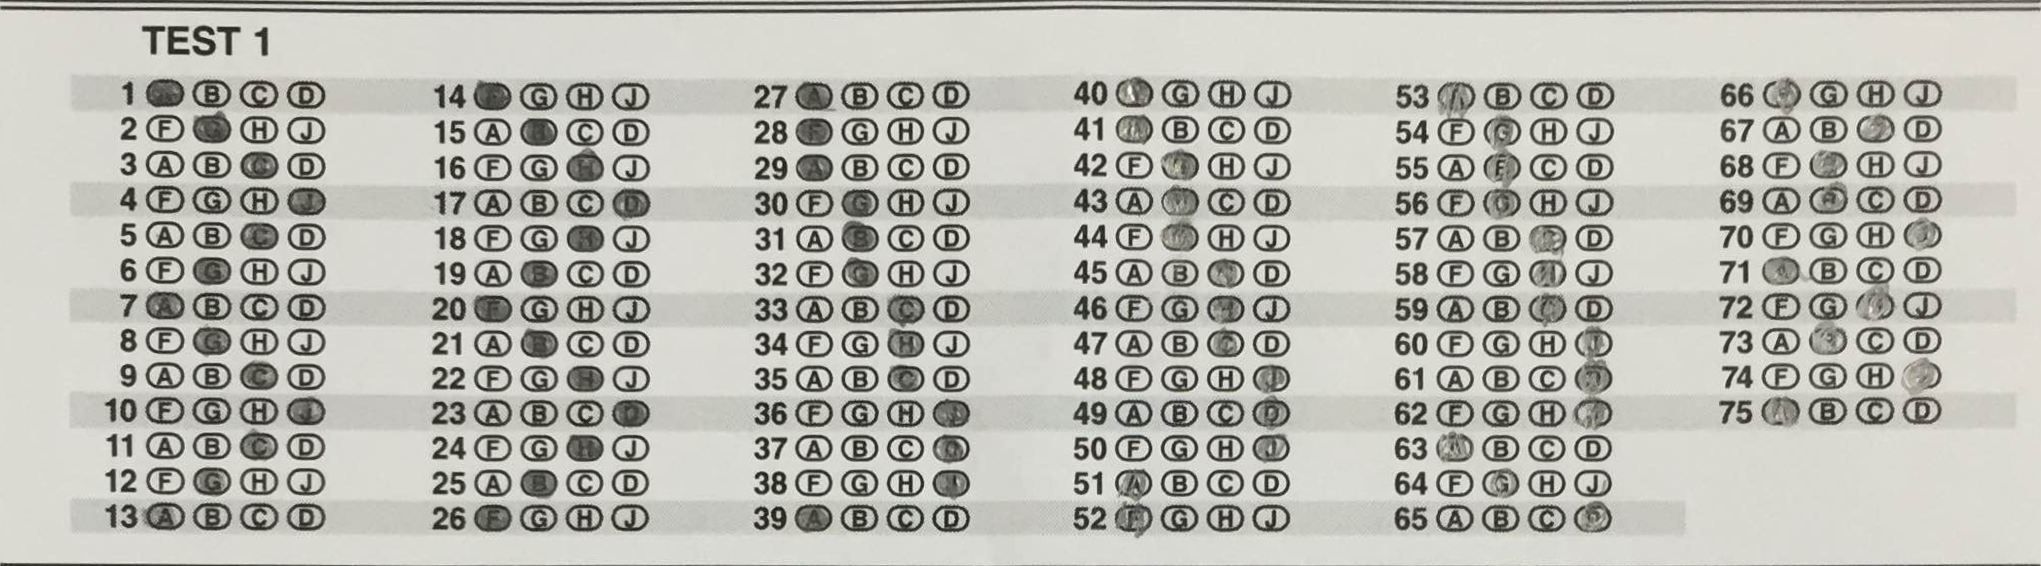 TEST 1
1 B C D
2 F G H J
3 A B C D
4 F G H J
5 A B C D
6 F G H J
7 A B C D
8 F G H J
9 A B C D
10 F G H J
11 A B C D
12 F G H J
13 A B C D
14 G H J
15 A B C D
16 F G H J
17 A B C D
18 F G H J
19 A B C D
20 F G H J
21 A B C D
22 F G H J
23 A B C D
24 F G H J
25 A B C D
26 F G H J
27 A B C D
28 F G H J
29 A B C D
30 F G H J
31 A B C D
32 F G H J
33 A B C D
34 F G H J
35 A B C D
36 F G H J
37 A B C D
38 F G H J
39 A B C D
40 G H J
41 B C D
42 F H J
43 A C D
44 F H J
45 A B D
46 F G J
47 A B C D
48 F G H J
49 A B C D
50 F G H J
51 A B C D
52 F G H J
53 A B C D
54 F G H J
55 A B C D
56 F G H J
57 A B C D
58 F G H J
59 A B C D
60 F G H J
61 A B C
62 F G H
63 A B C D
64 F G H J
65 A B C D
66 G H J
67 A B D
68 F H J
69 A C D
70 F G H
71 B C D
72 F G J
73 A C D
74 F G H
75 A B C D